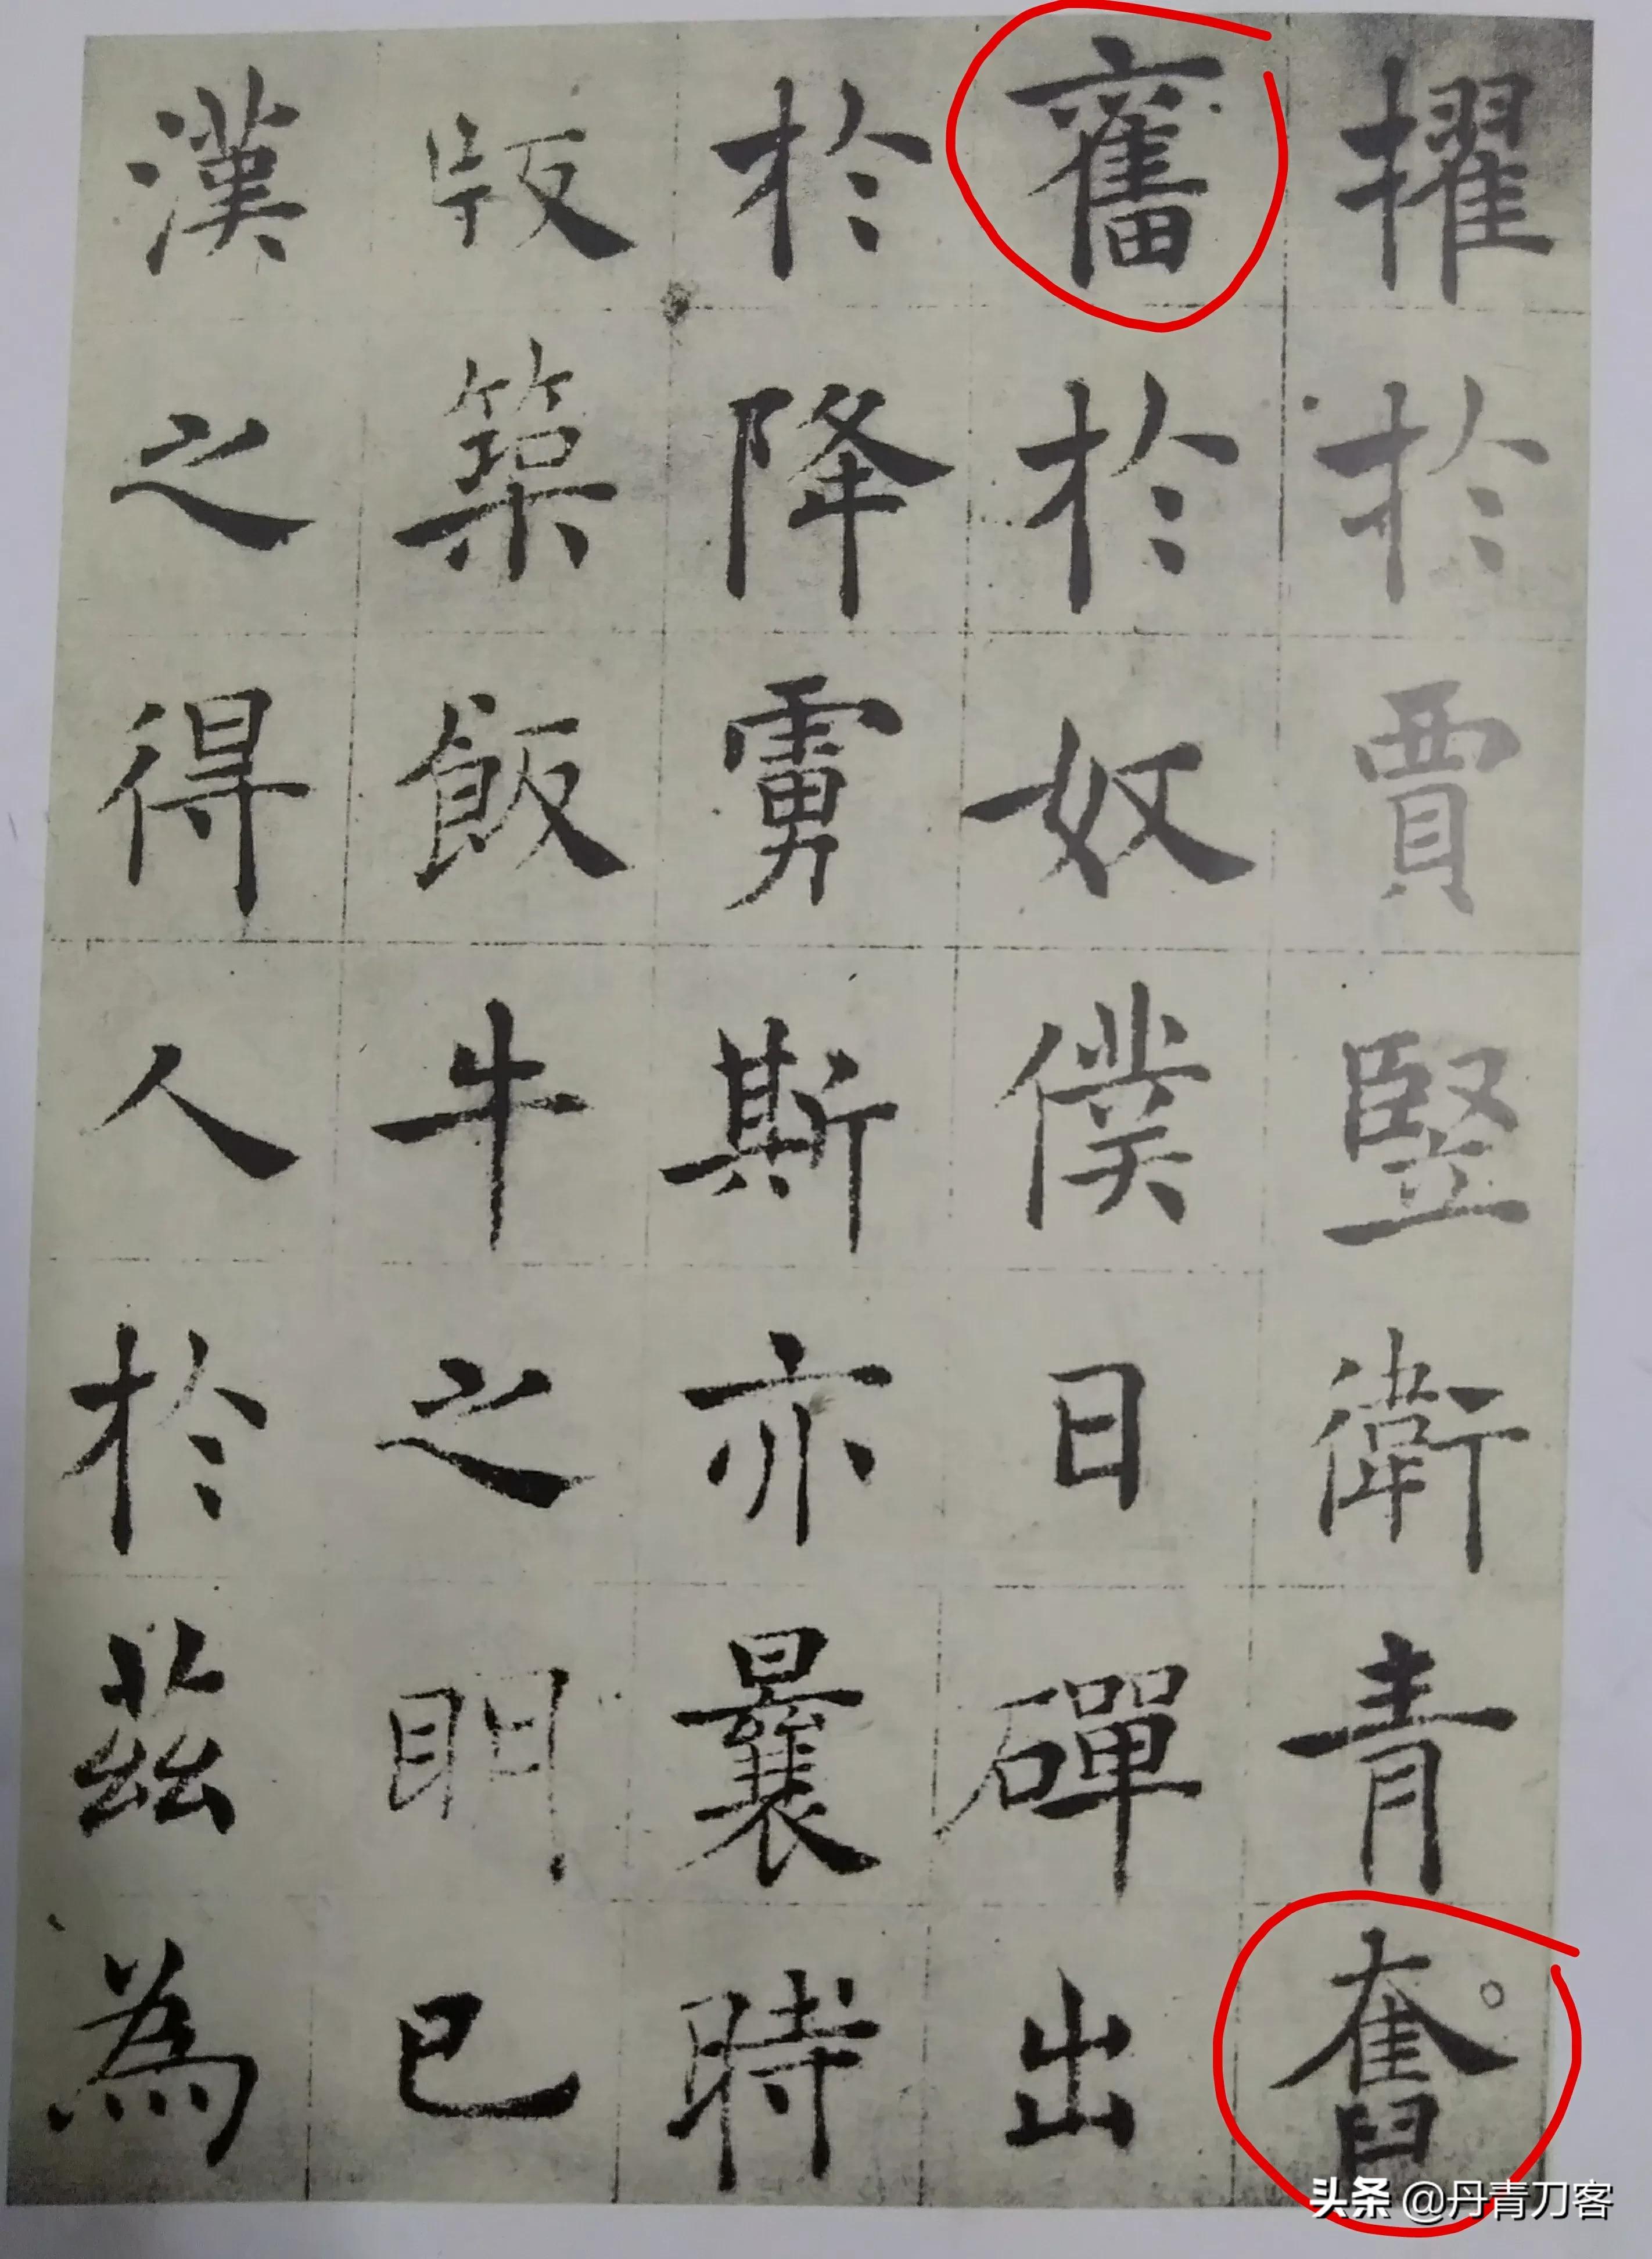 擢於賈竪衛青奮
奮於奴僕日磾出
於降虜斯亦曩時
版築飯牛之明已
漢之得人於茲為
头条 @丹青刀客